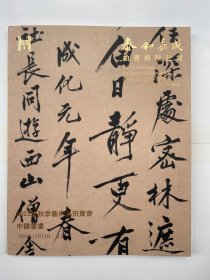 泰和嘉成
拍賣有限公司
深處密林遮
日靜更有
成化元年春
社長同遊西山僧
秋季藝術品拍賣會
中國書畫